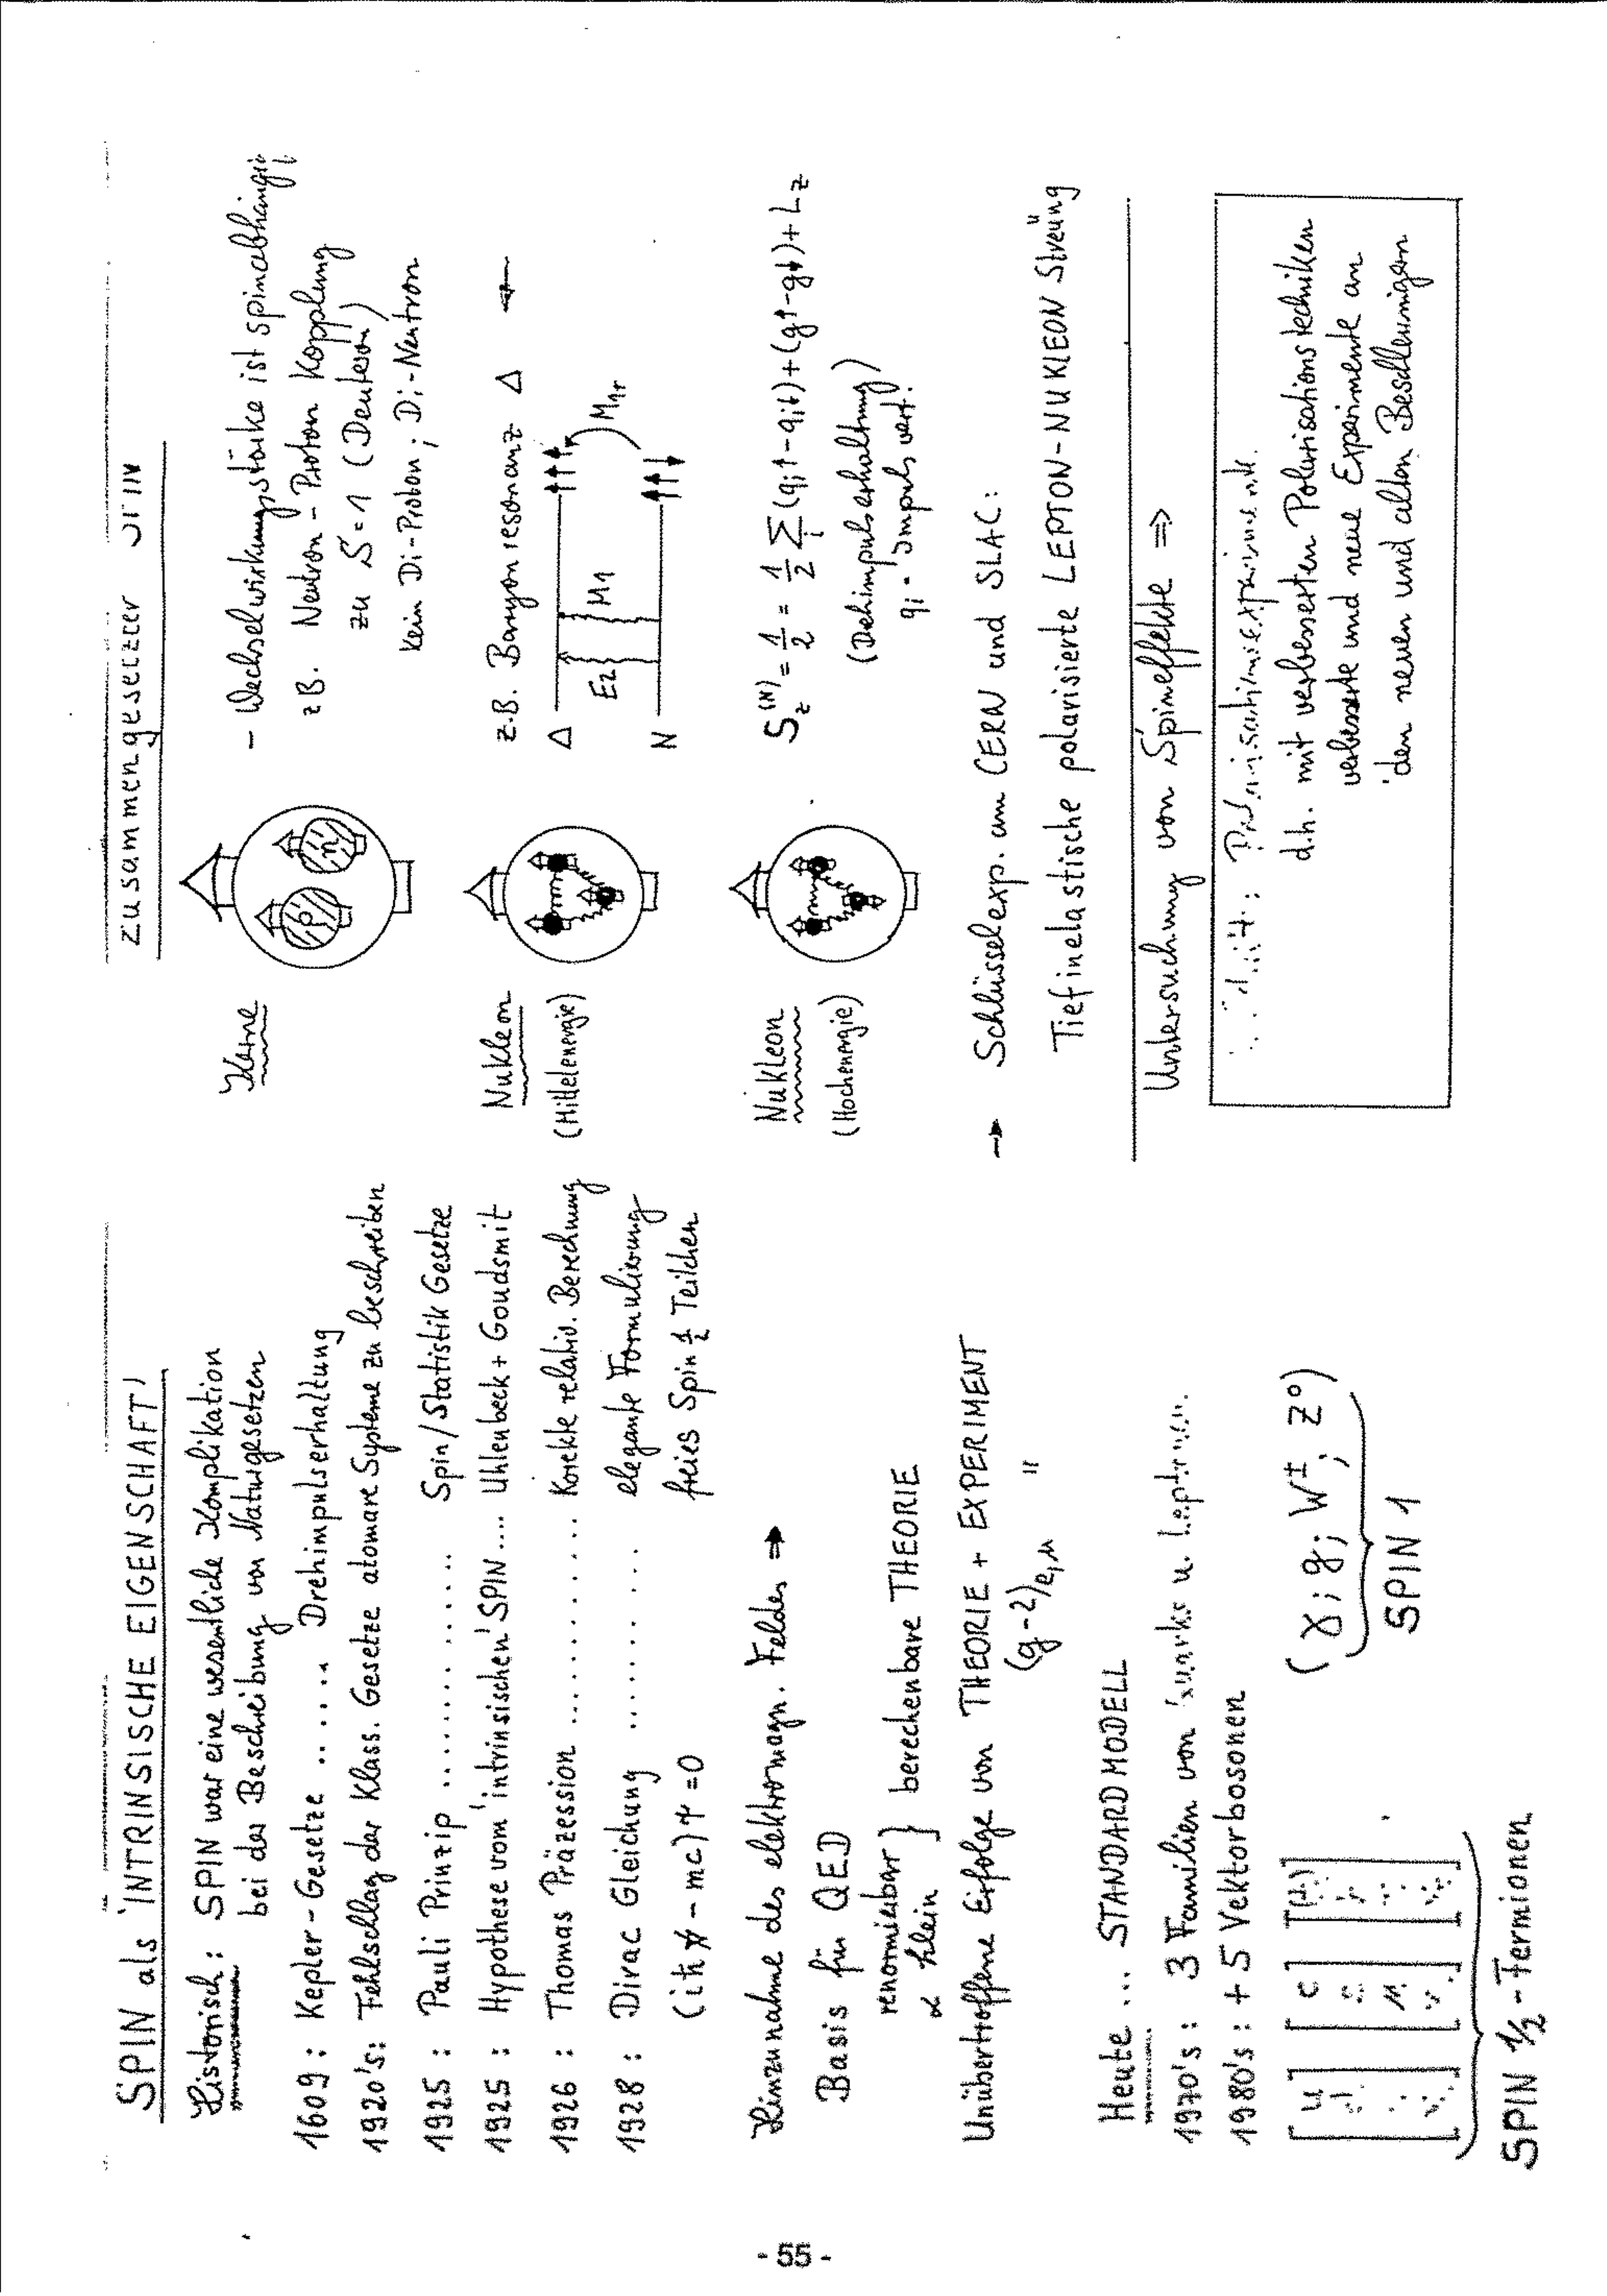 SPIN als 'INTRINSISCHE EIGENSCHAFT'
Historisch : SPIN war eine wesentliche Komplikation
bei der Beschreibung von Naturgesetzen
1609 : Kepler-Gesetze ..... Drehimpulserhaltung
1920's: Fehlschlag der Klass. Gesetze atomare Systeme zu beschreiben
1925 : Pauli Prinzip ............ Spin/Statistik Gesetze
1925 : Hypothese vom 'intrinsischen' SPIN.... Uhlenbeck + Goudsmit
1926 : Thomas Präzession ........... Korrekte relativ. Berechnung
1928 : Dirac Gleichung ....... elegante Formulierung
(iħ∇̸ - mc)ψ = 0 freies Spin ½ Teilchen
Hinzunahme des elektromagn. Feldes ⇒
Basis für QED
renormierbar } berechenbare THEORIE
α klein
Unübertroffene Erfolge von THEORIE + EXPERIMENT
(g-2)e,μ "
Heute ... STANDARDMODELL
1970's : 3 Familien von Quarks u. Leptonen
1980's : + 5 Vektorbosonen
[u [c [(t)
(γ; g; W±; Z°)
SPIN ½-Fermionen
SPIN 1
- 55 -
zusammengesetzter SPIN
Kerne
p n
- Wechselwirkungsstärke ist spinabhängig
z B. Neutron - Proton Kopplung
zu S = 1 (Deuteron)
Kein Di-Proton ; Di-Neutron
Nukleon
(Mittelenergie)
z.B. Baryon resonanz Δ ←
Δ ↑↑↑
E2 M1 M1+
N ↑↑↓
Nukleon
(Hochenergie)
Sz(N) = 1/2 = 1/2 Σi (qi↑-qi↓)+(g↑-g↓)+Lz
(Drehimpulserhaltung)
qi - Impulsvert.
→ Schlüsselexp. am CERN und SLAC:
Tiefinelastische polarisierte LEPTON-NUKLEON Streuung
Untersuchung von Spineffekte ⇒
Polarisationsexperimente
d.h. mit verbesserten Polarisationstechniken
verbesserte und neue Experimente an
den neuen und alten Beschleunigern